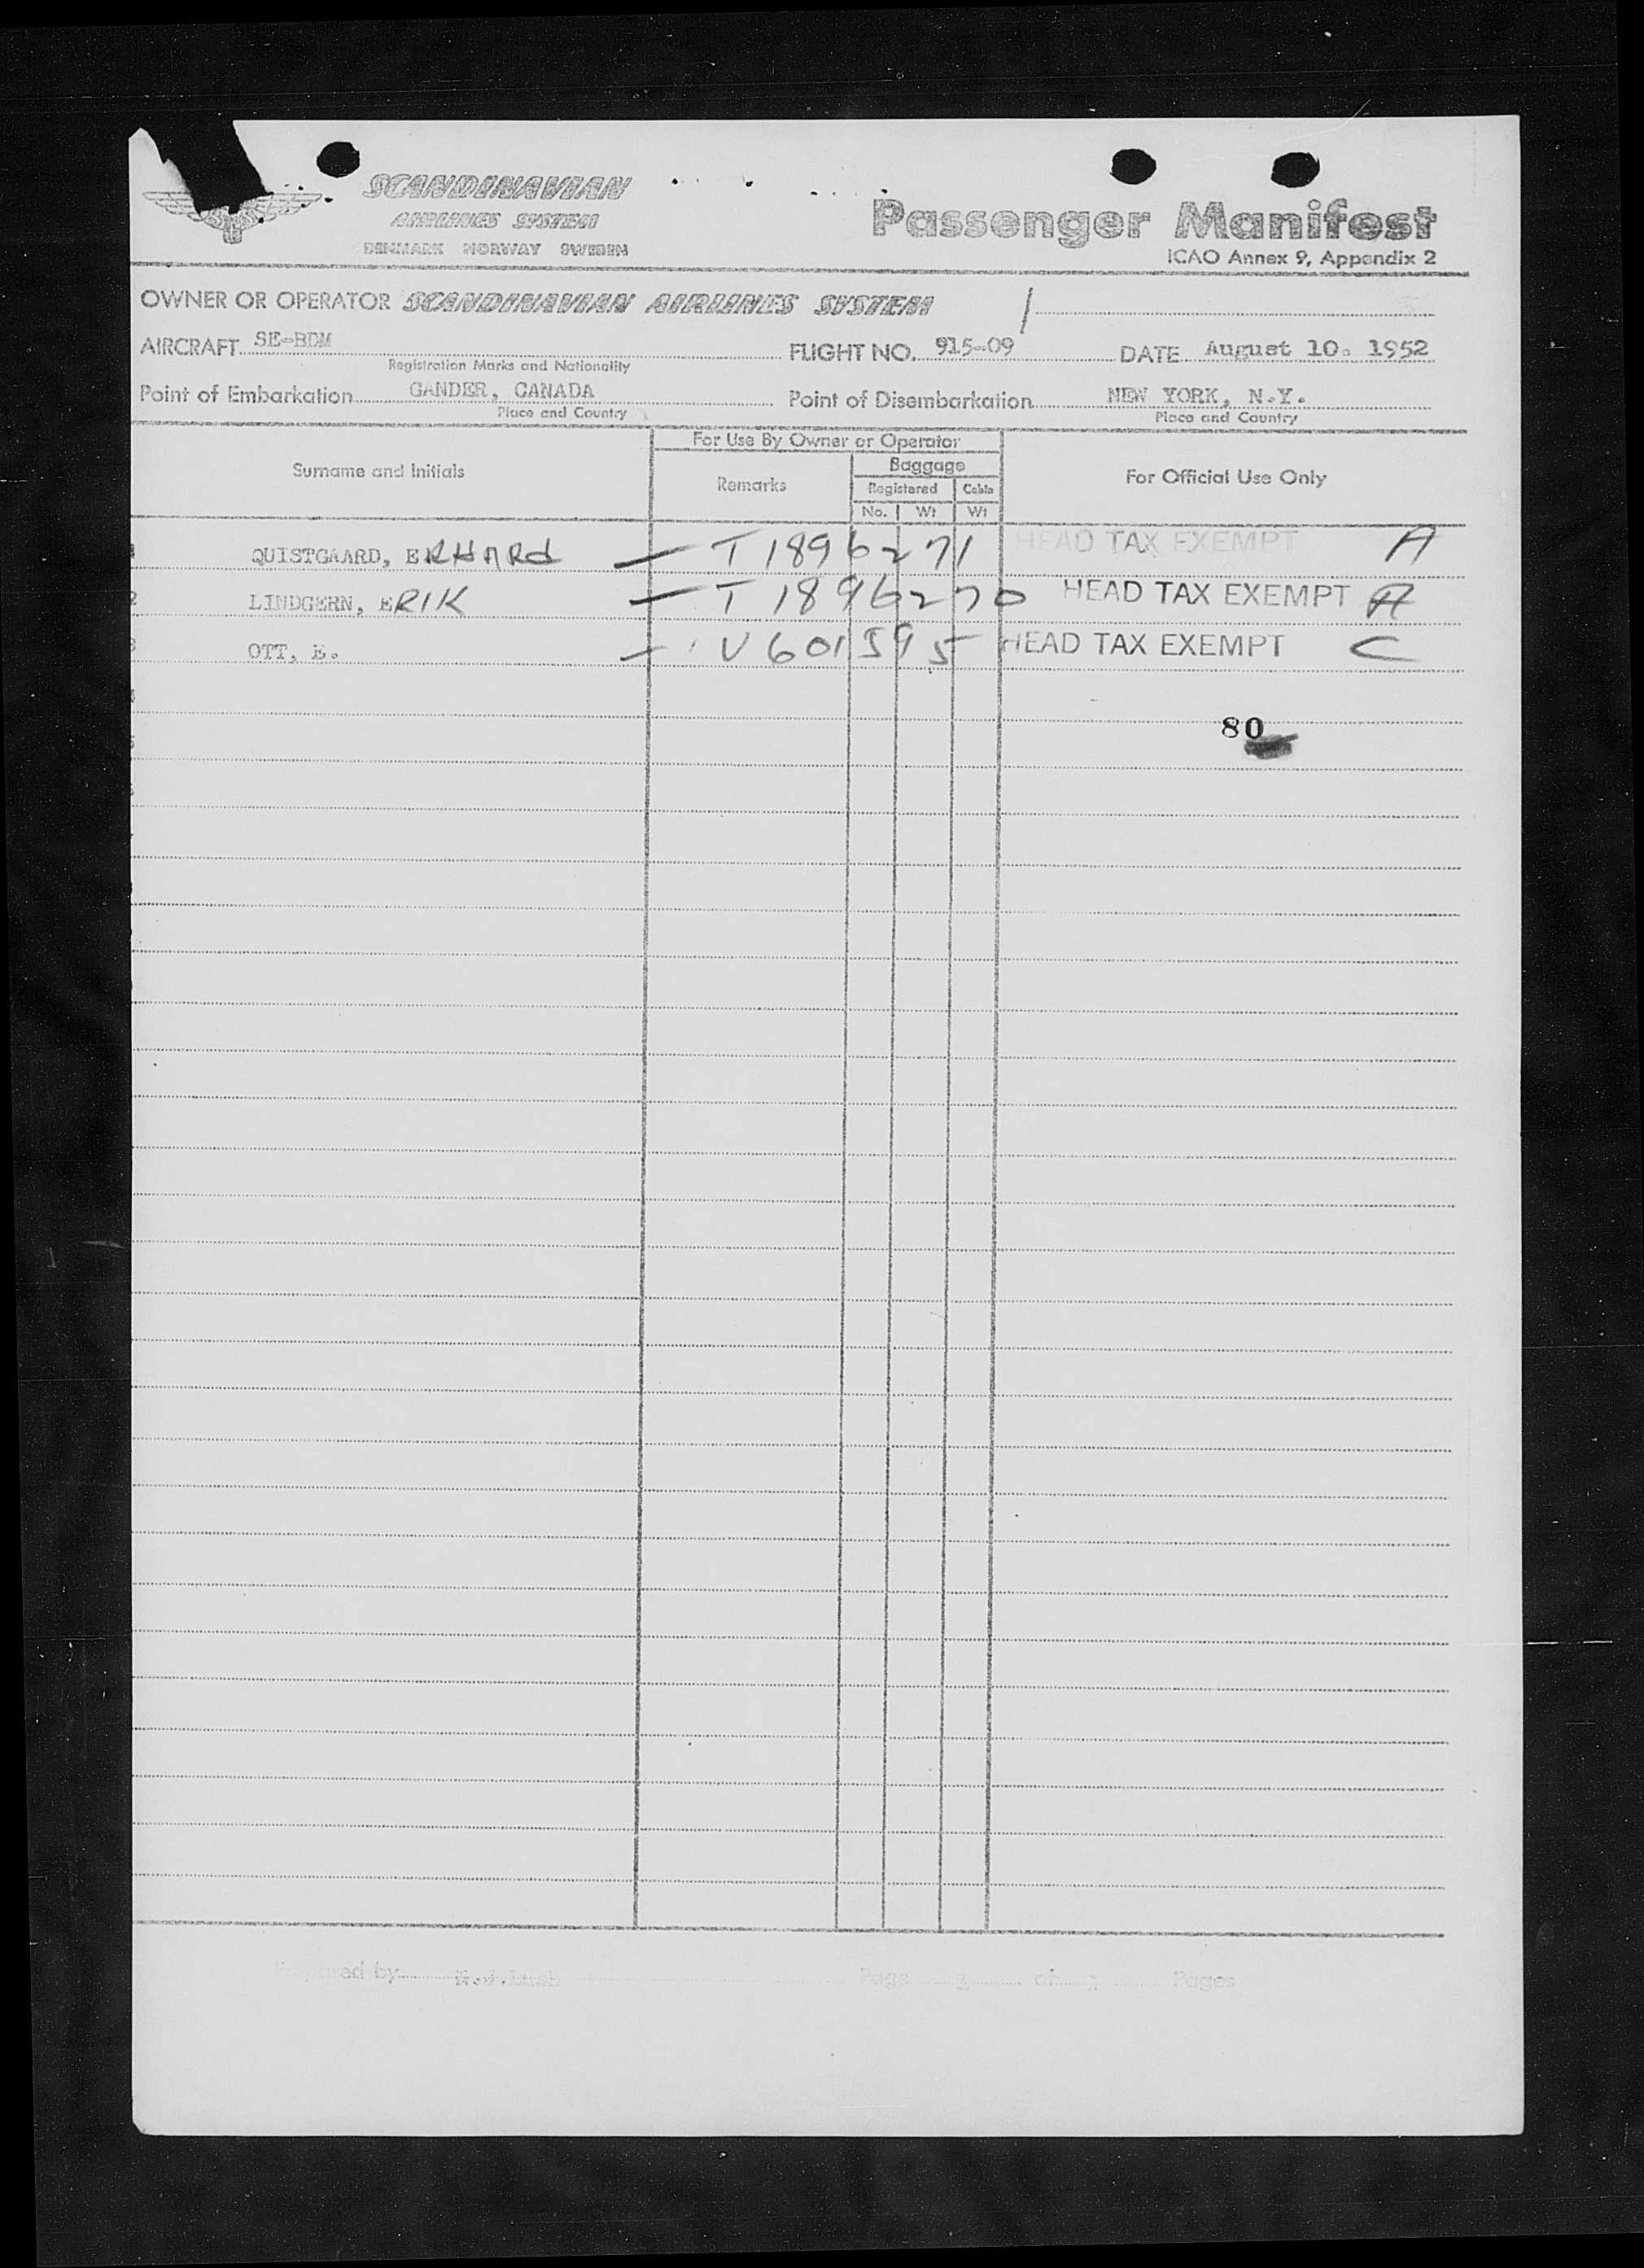 SCANDINAVIAN
AIRLINES SYSTEM
DENMARK NORWAY SWEDEN
Passenger Manifest
ICAO Annex 9, Appendix 2
OWNER OR OPERATOR SCANDINAVIAN AIRLINES SYSTEM
AIRCRAFT SE-BDM FLIGHT NO. 915-09 DATE August 10. 1952
Registration Marks and Nationality
Point of Embarkation GANDER, CANADA Point of Disembarkation NEW YORK, N.Y.
Place and Country Place and Country
For Use By Owner or Operator
Surname and Initials Remarks Baggage For Official Use Only
Registered Cabin
No. Wt Wt
QUISTGAARD, ERHARd — T 1896271 HEAD TAX EXEMPT A
2 LINDGERN, ERIK — T 1896270 HEAD TAX EXEMPT A
3 OTT, E. — V601595 HEAD TAX EXEMPT C
80
Prepared by Page of Pages